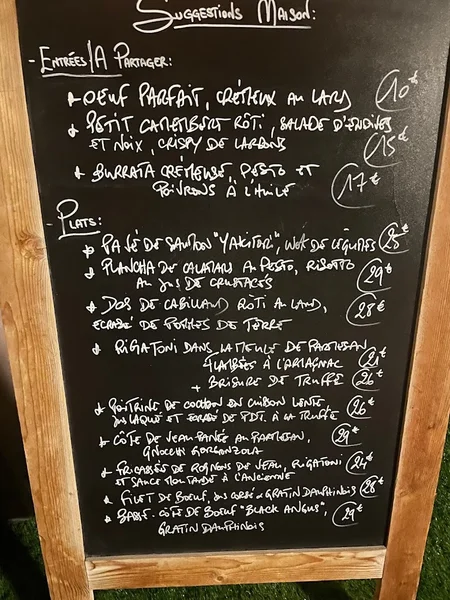 Suggestions Maison:
- Entrées/A Partager:
Oeuf Parfait, Crémeux au Lard 10€
Petit Camembert Rôti, Salade d'Endives
et Noix, Crispy de Lardons 15€
Burrata Crémeuse, Pesto et
Poivrons à l'Huile 17€
- Plats:
Pavé de Saumon "Yakitori", Wok de Légumes 25€
Plancha de Calamars au Pesto, Risotto
au Jus de Crustacés 29€
Dos de Cabillaud Rôti au Lard, 28€
Ecrasé de Pommes de Terre
Rigatoni dans la Meule de Parmesan
Flambées à l'Armagnac 21€
+ Brisure de Truffe 26€
Poitrine de Cochon en Cuisson Lente, 26€
Jus Laqué et Ecrasé de PDT à la Truffe
Côte de Veau Panée au Parmesan, 29€
Gnocchi Gorgonzola
Fricassée de Rognons de Veau, Rigatoni 24€
et Sauce Moutarde à l'Ancienne
Filet de Boeuf, Jus Corsé et Gratin Dauphinois 28€
Basse-Côte de Boeuf "Black Angus", 29€
Gratin Dauphinois